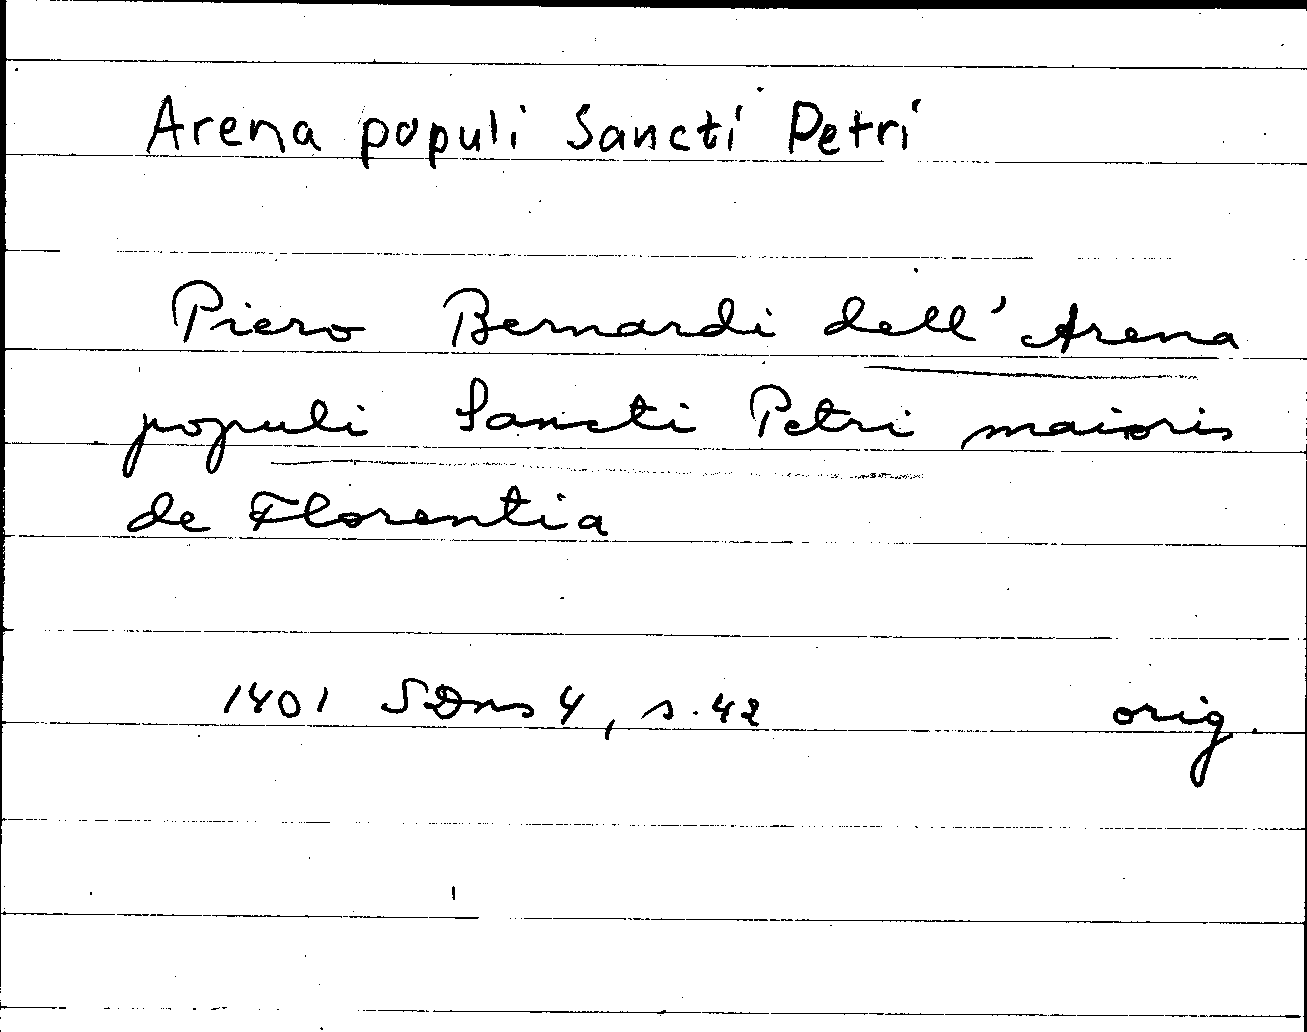 Arena populi Sancti Petri
Piero Bernardi dell' Arena
populi Sancti Petri maioris
de Florentia
1401 SDns 4, s. 42 orig.